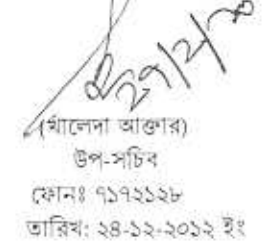 (খালেদা আক্তার)
উপ-সচিব
ফোনঃ ৭১৭২১২৮
তারিখ: ২৪-১২-২০১২ ইং